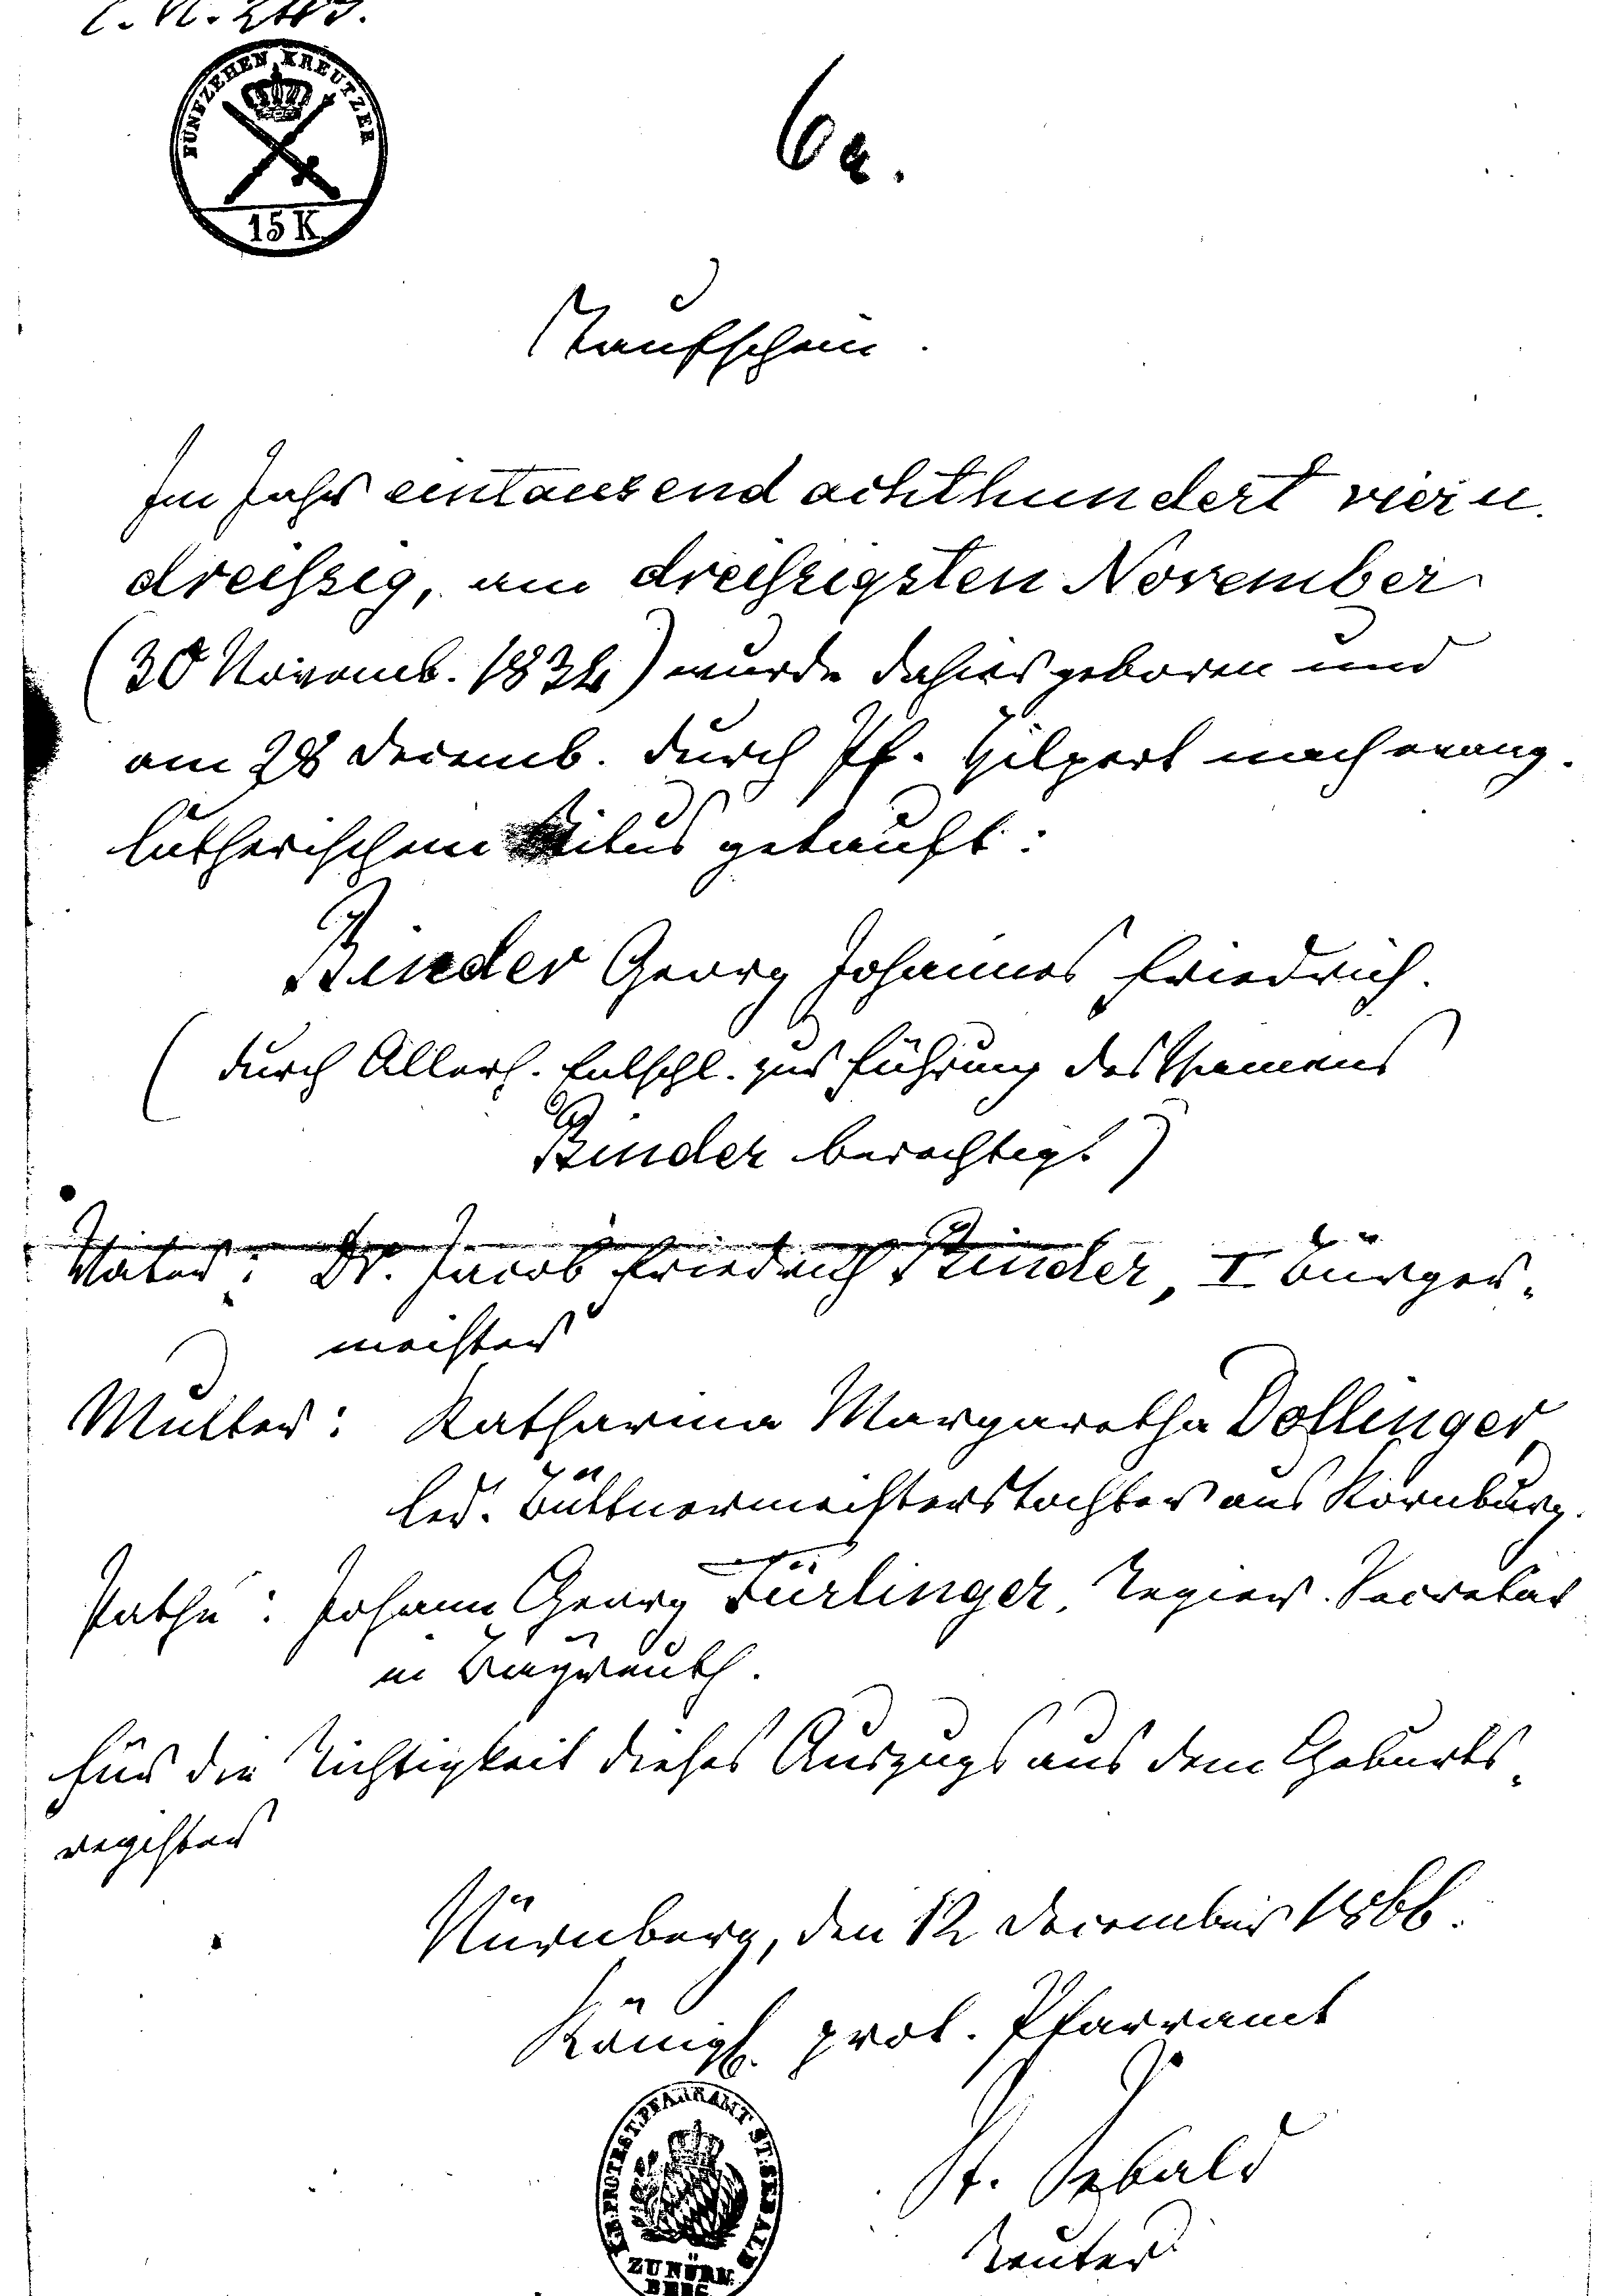 FÜNFZEHEN KREUTZER
15 K
6a.
Taufschein.
Im Jahr eintausend achthundert vier u.
dreißzig, am dreißzigsten November
(30 Novemb. 1834) wurde dahier geboren und
am 28 Decemb. durch Pf. Hilpert nach evang.
lutherischem Ritus getauft:
Binder Georg Johannes Friedrich.
(durch Allerh. Entschl. zur Führung des Namens
Binder berechtigt)
Vater: Dr. Jacob Friedrich Binder, I Bürger-
meister
Mutter: Katharina Margaretha Dollinger
led. Büttnermeisterstochter aus Kornburg.
Pathe: Johann Georg Fürlinger, Regier. Secretär
in Bayreuth.
Für die Richtigkeit dieses Auszugs aus dem Geburts-
register
Nürnberg, den 12 December 1866.
Königl. prot. Pfarramt
St. Sebald
KGL. PROTEST. PFARRAMT ST. SEBALD
ZU NÜRN
BERG
Reuter